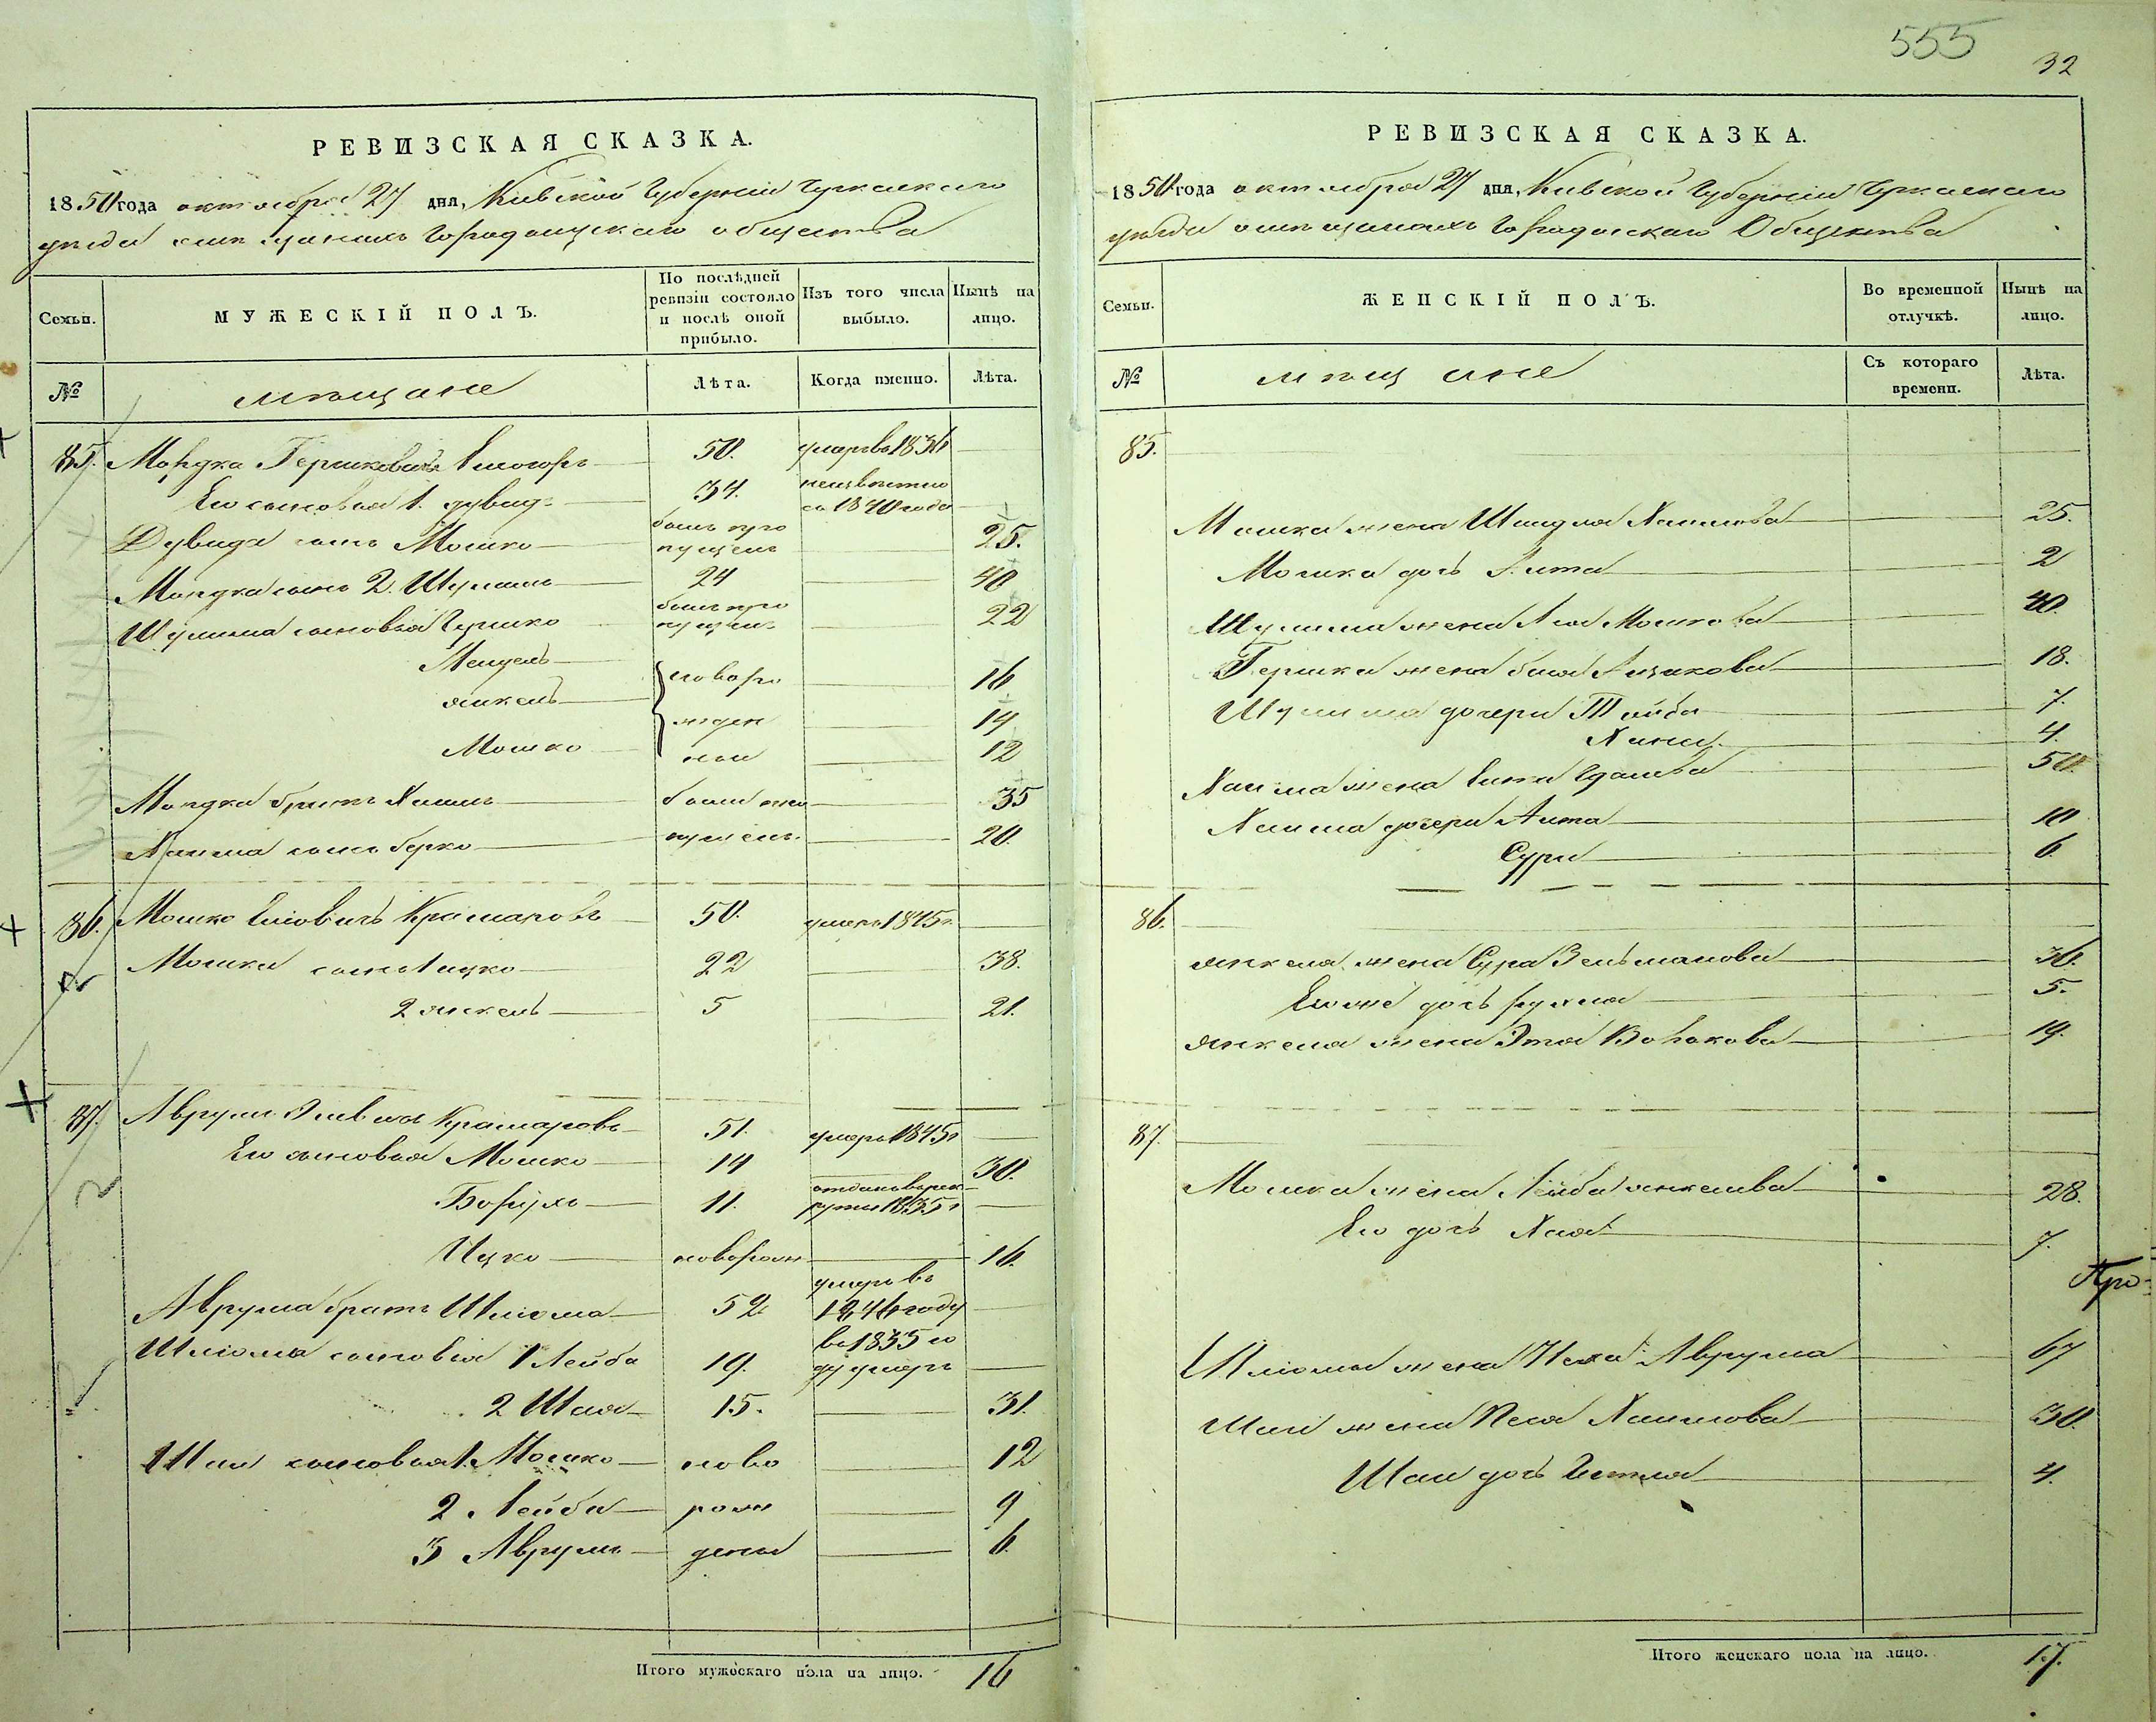 555
32
РЕВИЗСКАЯ СКАЗКА.
1850 года октября 27 дня, Киевской Губернии Черкаскаго
уезда о мещанахъ Городищускаго общества
Семьи.
МУЖЕСКІЙ ПОЛЪ.
По послѣдней ревизіи состояло и послѣ оной прибыло.
Изъ того числа выбыло.
Нынѣ на лицо.
№
мещане
Лѣта.
Когда именно.
Лѣта.
85. Мордко Гершковичъ 50. умеръ въ 1836
Его сыновья 1. Дувидъ 34. неизвестно съ 1840 года
Дувида сынъ Мошко былъ пропущенъ 25.
Мордка сынъ 2. Шулимъ 24 40
Шулима сыновья Гершко былъ пропущенъ 22
Мендель
Янкель новоро 16
жден 14
Мошко ные 12
Мордка братъ Хаимъ были про 35
Хаима сынъ Берко пущены 20.
86. Мошко Крамаровъ 50. умеръ 1845 г.
Мошка сынъ Ицко 22 38.
2 Янкель 5 21.
87. Аврумъ Крамаровъ 51. умеръ 1845 г
Его сыновья Мошко 14 30.
Борухъ 11. отданъ въ рекруты 1835 г
Ицко новорож 16.
Аврума братъ Шлиома 52 умеръ въ 1846 году
Шлиома сыновья 1 Лейба 19. въ 1835 го
ду умеръ
2 Шая 15. 31.
Шаи сыновья 1. Мошко ново 12
2 Лейба рож 9
3 Аврумъ дены 6.
Итого мужескаго пола на лицо. 16
РЕВИЗСКАЯ СКАЗКА.
1850 года октября 27 дня, Киевской Губернии Черкаскаго
уезда о мещанахъ Городискаго Общества
Семьи.
ЖЕНСКІЙ ПОЛЪ.
Во временной отлучкѣ.
Нынѣ на лицо.
№
мещане
Съ котораго времени.
Лѣта.
85.
Мошка жена Шендля Хаимова 25.
Мошка дочь 2
Шулима жена Лея Мошкова 40.
Гершка жена Бася Ицикова 18.
Шулима дочери Тайба 7.
Хана 4.
Хаима жена 50.
Хаима дочери Аита 10
Сура 6.
86.
Янкеля жена Сура Зельманова 36.
Его же дочь Рухля 5.
Янкеля жена Этя 19.
87.
Мошка жена Лейба Янкелева 28.
Его дочь Хая 7.
Про=
Шлиомы жена Неха Аврума 67
Шаи жена Песя Хаимова 30.
Шаи дочь 4.
Итого женскаго пола на лицо. 17.